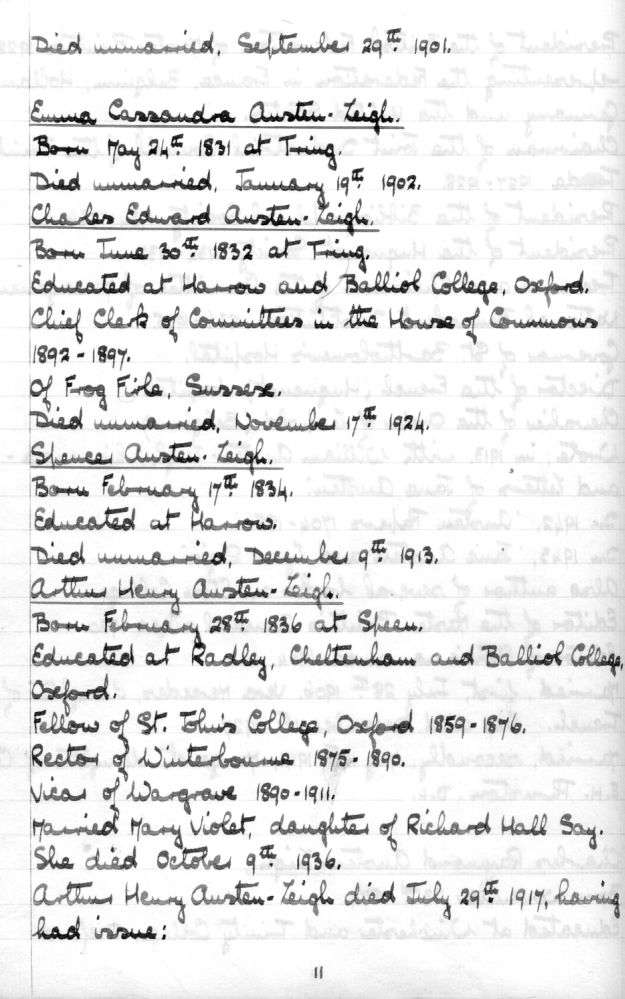 Died unmarried, September 29th 1901.
Emma Cassandra Austen-Leigh.
Born May 24th 1831 at Tring.
Died unmarried, January 19th 1902.
Charles Edward Austen-Leigh.
Born June 30th 1832 at Tring.
Educated at Harrow and Balliol College, Oxford.
Chief Clerk of Committees in the House of Commons
1892 - 1897.
Of Frog Firle, Sussex.
Died unmarried, November 17th 1924.
Spencer Austen-Leigh.
Born February 17th 1834.
Educated at Harrow.
Died unmarried, December 9th 1913.
Arthur Henry Austen-Leigh.
Born February 28th 1836 at Speen.
Educated at Radley, Cheltenham and Balliol College,
Oxford.
Fellow of St. John's College, Oxford 1859-1876.
Rector of Winterbourne 1875-1890.
Vicar of Wargrave 1890-1911.
Married Mary Violet, daughter of Richard Hall Say.
She died October 9th 1936.
Arthur Henry Austen-Leigh died July 29th 1917, having
had issue:
11